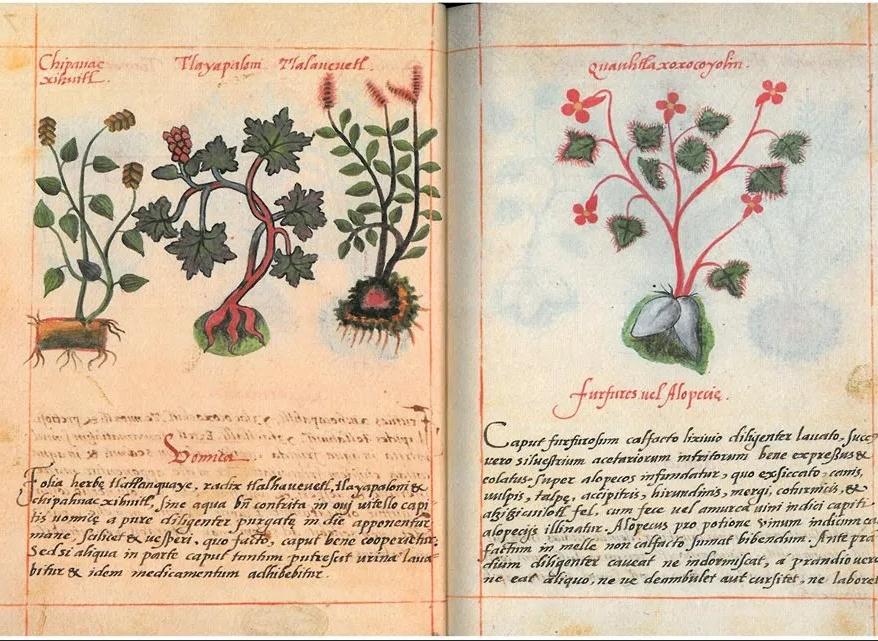 Chipanac
xihuitl.
Tlayapaloni
Tlalaueuetl.
Vomica
Folia herbę tlatlanquaye, radix tlalhaueuetl, tlayapaloni &
chipahuac xihuitl, sine aqua bñ contrita in oui uitello capi-
tis uomicę a pure diligenter purgatę in die apponentur
mane scilicet & uesperi, quo facto, caput bene cooperietur.
Sed si aliqua in parte caput tantum putrescit urina laua-
bitur & idem medicamentum adhibebitur.
Quauhtlaxoxocoyolin.
Furfures uel Alopecię.
Caput furfurosum calfacto lixiuio diligenter lauato. Succ
vero siluestrium acetariorum intritorum bene expressus &
colatus super alopecos infundatur, quo exsiccato canis,
uulpis, talpę, accipitris, hirundinis, mergi, coturnicis, &
fel, cum fece uel amurca uini indici capiti
alopecijs illinatur. Alopecus pro potione vinum indicum ca
factum in melle non calfacto sumat bibendum. Ante pran
dium diligenter caueat ne indormiscat, a prandio uero
ne eat aliquo, ne ue deambulet aut cursitet, ne laboret